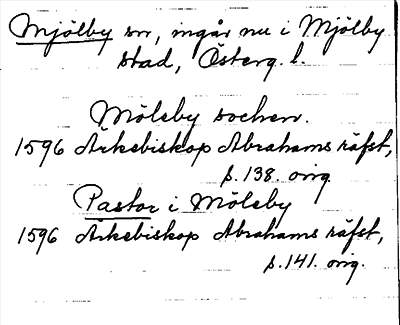 Mjölby sn, ingår nu i Mjölby
stad, Österg. l.
Möleby sochen.
1596 Ärkebiskop Abrahams räfst,
p. 138. orig.
Pastor i Möleby
1596 Ärkebiskop Abrahams räfst,
p. 141. orig.